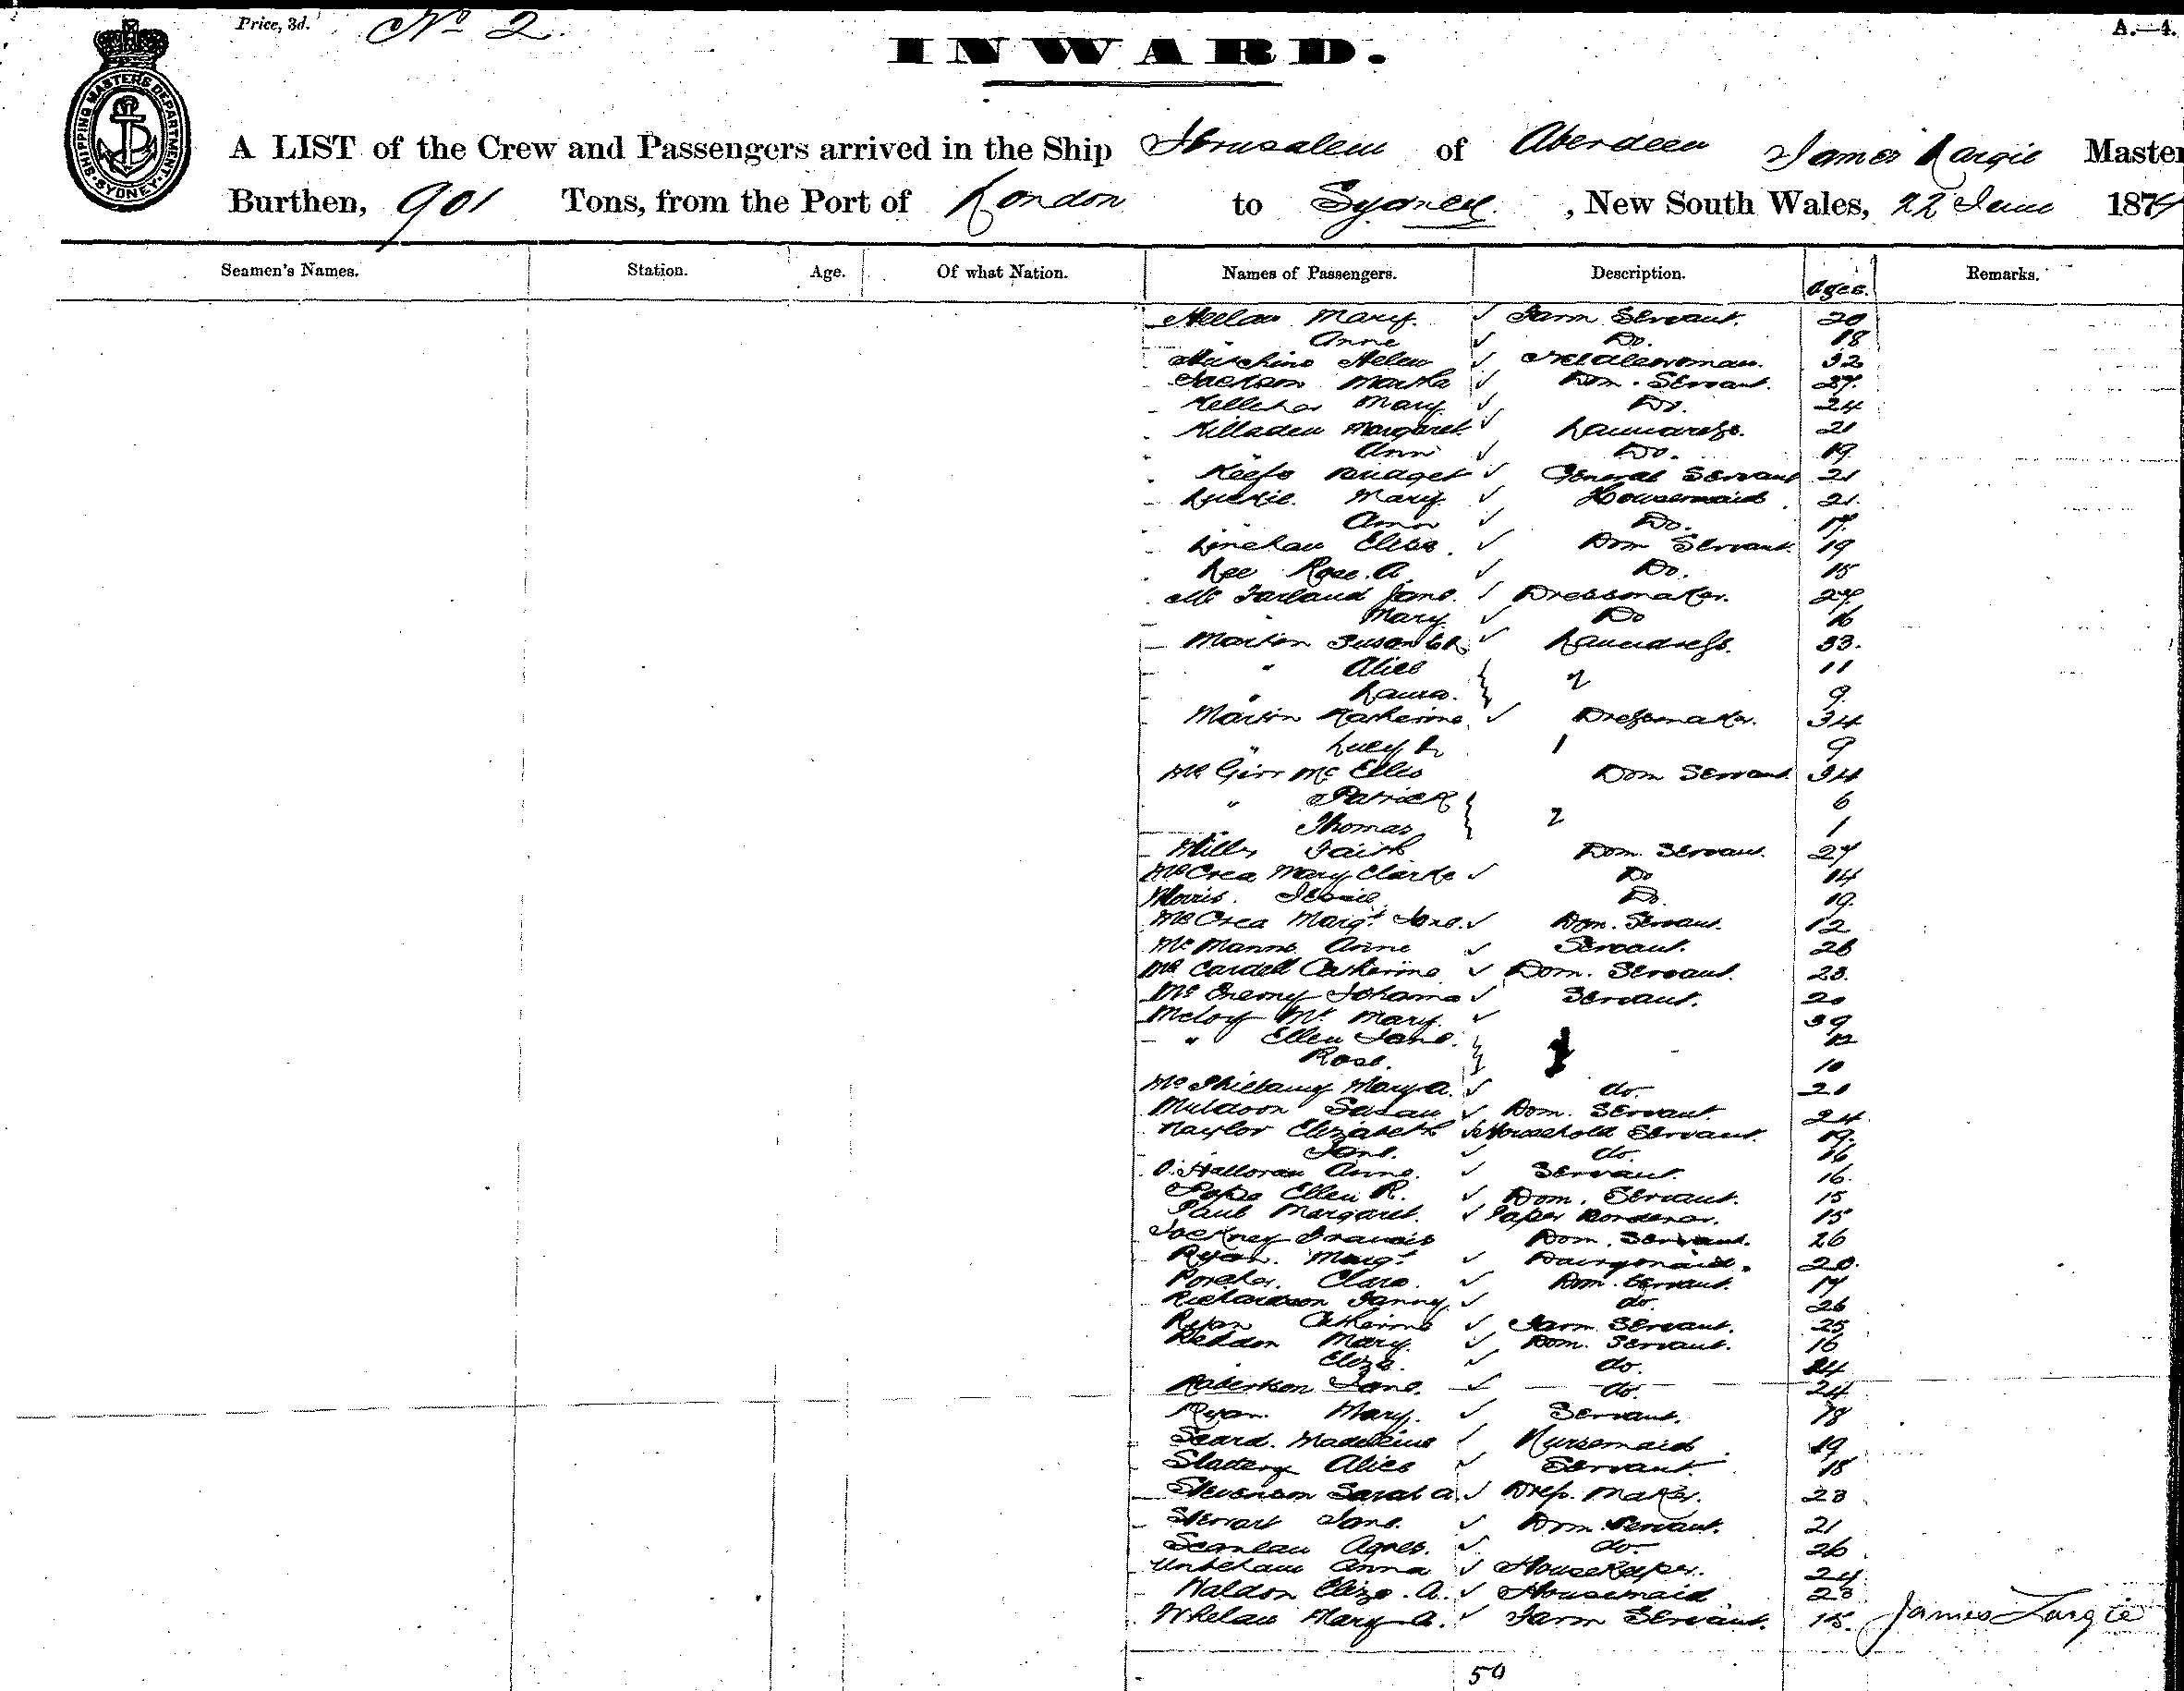 Price, 3d. No 2.
A.—4.
INWARD.
SHIPPING MASTERS DEPARTMENT SYDNEY
A LIST of the Crew and Passengers arrived in the Ship Jerusalem of Aberdeen James Largie Master
Burthen, 901 Tons, from the Port of London to Sydney, New South Wales, 22 June 187
Seamen's Names. Station. Age. Of what Nation. Names of Passengers. Description. Ages. Remarks.
Mary Farm Servant. 20
Anne Do. 18
Helen 32
Jackson Martha Dom. Servant.
Kelleher Mary Do. 24
Killaden Margaret Laundress. 21
" Ann Do. 19
Keefe Bridget General Servant 21
Luckie Mary Housemaid 21.
" Ann Do. 17
Linehan Eliza. Dom Servant. 19
Lee Rose. A. Do. 15
Mc Farland Jane. Dressmaker. 27
" Mary Do 16
Martin Susan Laundress. 33.
" Alice 2 11
" Laura. 9.
Martin Katherine. Dressmaker. 34
" Lucy L 1 9
Mc Girr Mc Ellis Dom Servant. 34
" Patrick 2 6
Thomas 1
Mills Faith Dom. Servant. 27
McCrea Mary Clarke Do 14
Morris. Jessie Do. 19.
McCrea Margt Jane. Dom. Servant. 12
McManns Anne Servant. 26
Mc Cardell Catherine Dom. Servant. 23.
Mc Enemy Johanna Servant. 20
Meloy Mary. 39
" Ellen Jane. 12
Rose. 10
Mc Mary A. do. 20
Muldoon Susan Dom. Servant. 24
Naylor Elizabeth Household Servant. 19.
" Jane. do. 16
O'Halloran Anne. Servant. 16.
Pope Ellen R. Dom. Servant. 15
Paul Margaret. Paper 15
Francis Dom. Servant. 26
Ryan. Margt Dairymaid. 20.
Porcher. Clara. Dom. Servant. 17
Richardson Fanny. do. 26
Ryan Catherine Farm Servant. 25
Mary. Dom. Servant. 16
Eliza. do. 14
Robertson Jane. do. 24
Ryan Mary. Servant. 18
Seard. Madeleine Nursemaid 19
Slattery Alice Servant. 18
Stevenson Sarah A. Dress Maker. 23
Stewart Jane. Dom. Servant. 21
Scanlan Agnes. do. 26
Anna Housekeeper. 24
Waldon Eliza. A. Housemaid 23
Whelan Mary A. Farm Servant. 15. James Largie
50